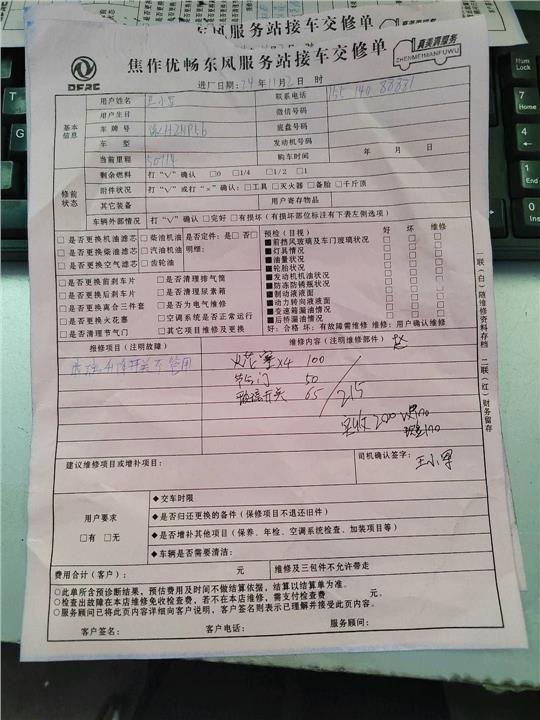 东风服务站接车交修单
焦作优畅东风服务站接车交修单
DFAC
真美满服务
ZHENMEIMANFUWU
进厂日期：24年11月2日 时
用户姓名 王小军 联系电话 155 140 88831
用户生日 微信号码
基本信息
车牌号 底盘号码
车型 发动机号码
当前里程 50114 购车时间 年 月 日
修前状态
剩余燃料 打“V”确认 □0 □1/4 □1/2 □1
附件状况 打“V”或打“×”确认：□工具 □灭火器 □备胎 □千斤顶
其它装备 用户寄存物品
车辆外部情况 打“V”确认 □完好 □有损坏（有损坏部位标注有下表左侧选项）
□是否更换机油滤芯 □柴机油 是否定件：□是 □否
□是否更换柴油滤芯 □汽机油 明细：
□是否更换空气滤芯 □齿轮油
□是否更换前刹车片 □是否清理排气筒
□是否更换后刹车片 □是否清理尿素箱
□是否更换离合三件套 □是否为电气维修
□是否更换火花塞 □空调系统是否正常运行
□是否清理节气门 □其它项目维修及更换
预检（目视） 好 坏 维修
■前挡风玻璃及车门玻璃状况 □ □ □
■灯具情况 □ □ □
■油量状况 □ □ □
■轮胎状况 □ □ □
■发动机机油状况 □ □ □
■防冻防锈瓶状况 □ □ □
■制动液液面 □ □ □
■动力转向液液面 □ □ □
■变速箱漏油情况 □ □ □
■后桥漏油情况 □ □ □
好：合格 坏：有故障需维修 维修：用户确认维修
报修项目（注明故障） 维修内容（注明维修部件）
玻璃升降开关不管用
火花塞x4 100
节气门 50
玻璃开关 65
215
实收200
建议维修项目或增补项目：
司机确认签字：王小军
用户要求
□有 □无
◆交车时限
◆是否归还更换的备件（保修项目不退还旧件）
◆是否增补其他项目（保养、年检、空调系统检查、加装项目等）
◆车辆是否需要清洁：
费用合计（客户）： 元 维修及三包件不允许带走
○此单所含预诊断结果，预估费用及时间不做结算依据，结算以结算单为准。
○检查出故障在本店维修免收检查费，若不在本店维修，需支付检查费 元。
○服务顾问已将此页内容详细向客户说明，客户签名则表示已理解并接受此页内容。
客户签名： 客户电话： 服务顾问：
一联（白）随维修资料存档 二联（红）财务留存